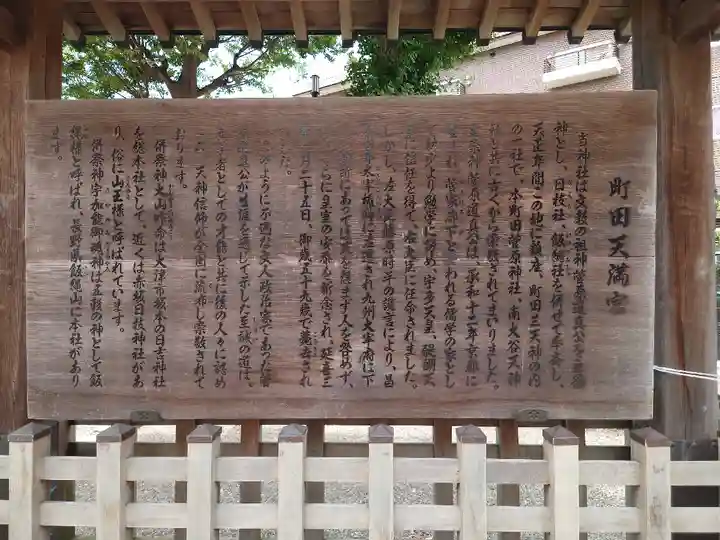 町田天満宮
当神社は文教の祖神菅原道真公を主祭
神とし、日枝社、飯縄社を併せて奉斎し、
天正年間この地に鎮座、町田三天神の内
の一社で、本町田菅原神社、南大谷天神
社と共に古くから崇敬されてまいりました。
主祭神菅原道真公は、承和十二年京都に
菅家廊下といわれる儒学の家とし
より勉学に努め、宇多天皇、醍醐天
に信任を得て、右大臣に任命されました。
しかし、左大臣藤原時平の讒言により、昌
太宰権帥に左遷され九州大宰府に下
にあっては天を怨まず人を咎めず、
らに皇室の安泰を祈念され、延喜三
月二十五日、御歳五十九歳で薨去され
した。
のように不遇な文人政治家であった菅
公が生涯を通じて示した至誠の道は、
者としての才能と共に後の人々に認め
天神信仰が全国に流布し崇敬されて
おります。
併祭神大山咋命は大津市坂本の日吉神社
を総本社として、近くは赤坂日枝神社があ
り、俗に山王様と呼ばれています。
併祭神宇加能御魂神は五穀の神として飯
縄様と呼ばれ、長野県飯縄山に本社があり
ます。